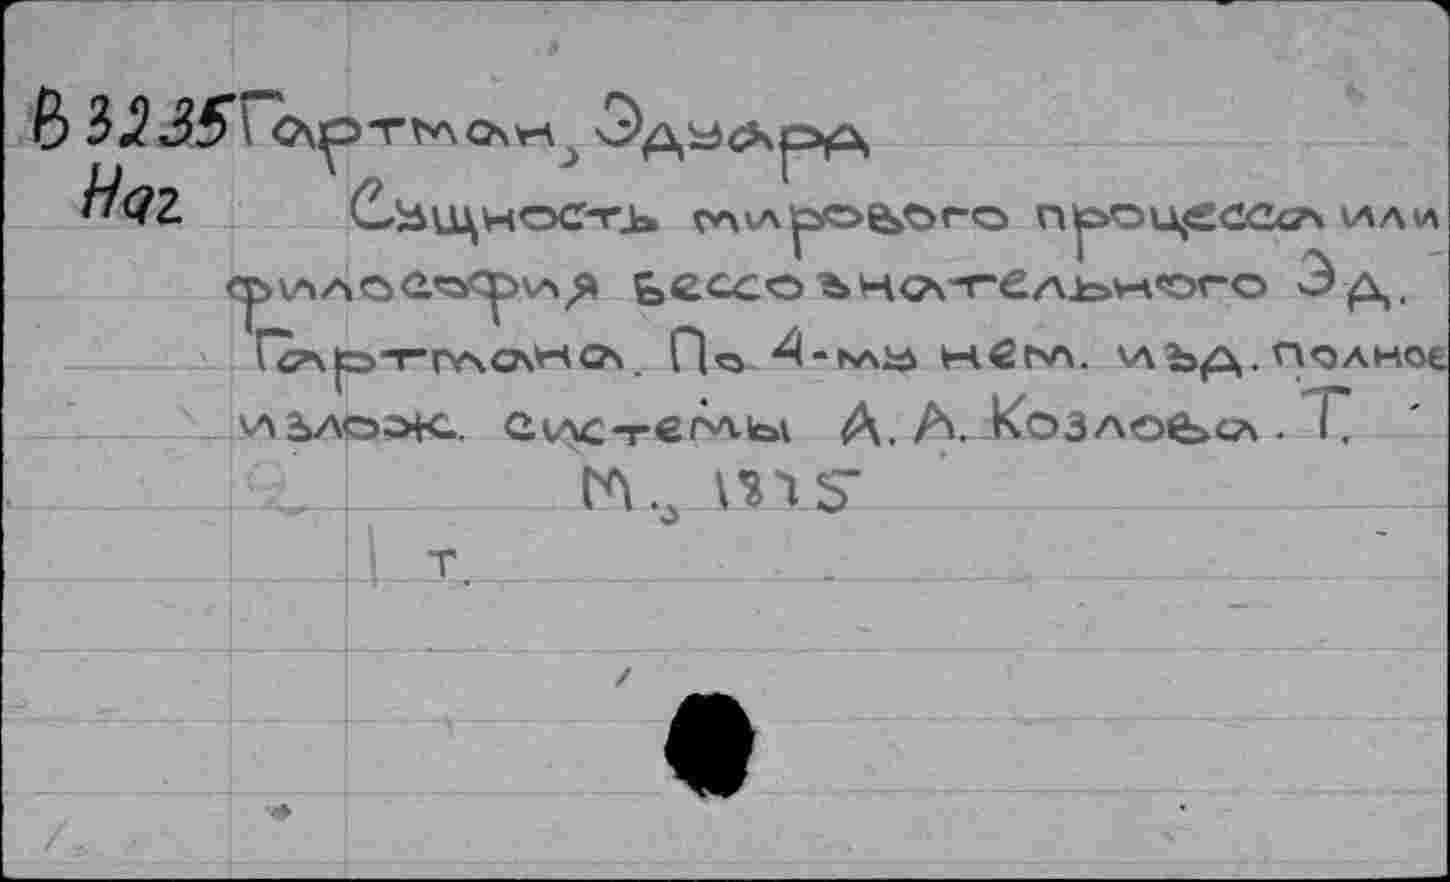 В 3235 Гартман, Эдуард
Наг Сущность мирового процесса или
философия бессознательного Эд.
Гартмана. По 4-му нем. изд. полное
излож. системы А. А. Козлова. Т.
М., 1875
1 т.